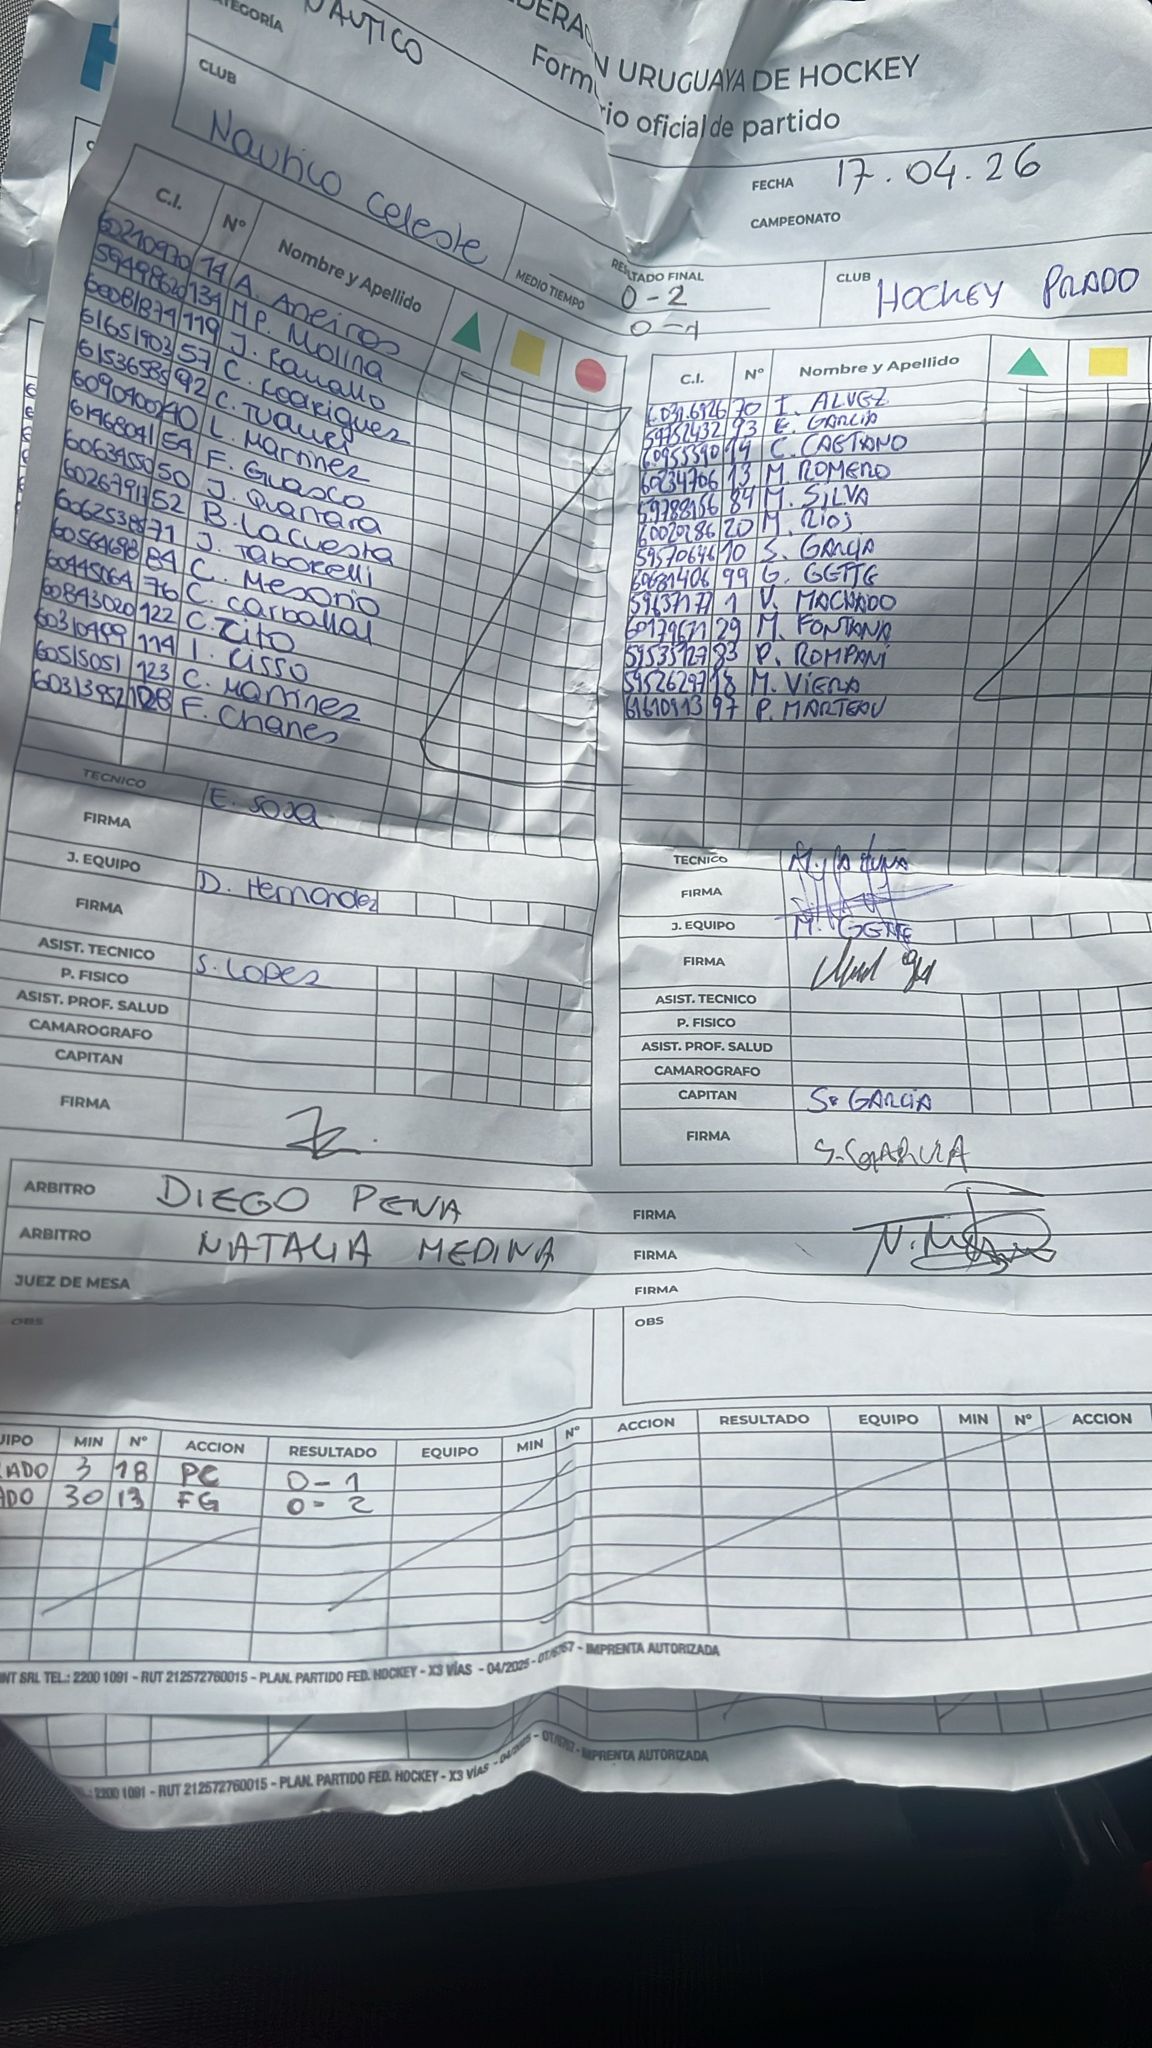 NAUTICO
FEDERACIÓN URUGUAYA DE HOCKEY
Formulario oficial de partido
CATEGORÍA
CLUB
Nautico Celeste
FECHA 17.04.26
CAMPEONATO
RESULTADO FINAL
0-2
MEDIO TIEMPO
0-1
CLUB HOCKEY PRADO
C.I. Nº Nombre y Apellido
60210930 14 A. Aneiros
59498620 134 M.P. Molina
60081874 119 J. Ravallo
61651903 57 C. Rodriguez
61536585 92 C.
60909000 40 L. Martinez
61468041 54 F. Guasco
60634550 50 J. Quartara
60267911 52 B. Lacuesta
60625385 71 J. Taborelli
60564698 84 C. Mesorio
60445064 76 C. Carballal
60843020 122 C. Zito
60310499 114 I. Cisso
60515051 123 C. Martinez
60313852 128 F. Chanes
TECNICO E. Sosa
FIRMA
J. EQUIPO D. Hernandez
FIRMA
ASIST. TECNICO S. Lopez
P. FISICO
ASIST. PROF. SALUD
CAMAROGRAFO
CAPITAN
FIRMA
C.I. Nº Nombre y Apellido
60316926 70 I. ALVEZ
59752432 93 E. GARCIA
60955390 14 C. CAETANO
60234706 13 M. ROMERO
59788156 84 M. SILVA
60020286 20 M. RIOJ
59570646 10 S. GARCIA
60681406 99 G. GETTE
59637177 1 V. MACHADO
60179671 29 M. FONTANA
59535727 83 P. ROMPANI
59526297 18 M. VIERA
61610913 97 P. MARTEAU
TECNICO
FIRMA
J. EQUIPO M. GETTE
FIRMA
ASIST. TECNICO
P. FISICO
ASIST. PROF. SALUD
CAMAROGRAFO
CAPITAN S. GARCIA
FIRMA S. GARCIA
ARBITRO DIEGO PENA FIRMA
ARBITRO NATALIA MEDINA FIRMA
JUEZ DE MESA FIRMA
OBS OBS
UIPO MIN Nº ACCION RESULTADO EQUIPO MIN Nº ACCION RESULTADO EQUIPO MIN Nº ACCION
RADO 3 18 PC 0-1
ADO 30 13 FG 0-2
INT SRL TEL.: 2200 1091 - RUT 212572760015 - PLAN. PARTIDO FED. HOCKEY - X3 VÍAS - 04/2025 - OT/6767 - IMPRENTA AUTORIZADA
.: 2200 1091 - RUT 212572760015 - PLAN. PARTIDO FED. HOCKEY - X3 VÍAS - 04/2025 - OT/6767 - IMPRENTA AUTORIZADA